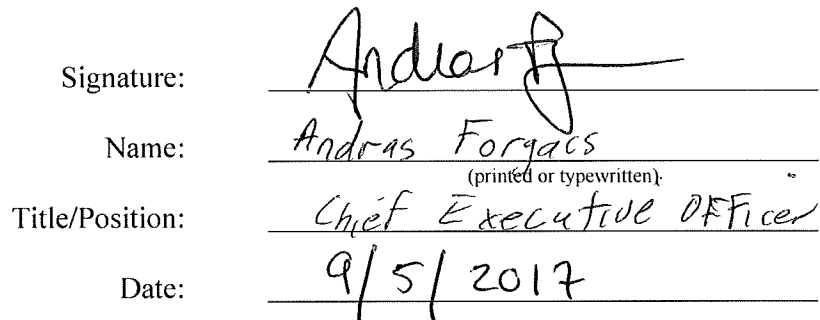 Signature: Andras F
Name: Andras Forgacs
(printed or typewritten)
Title/Position: Chief Executive Officer
Date: 9/5/2017